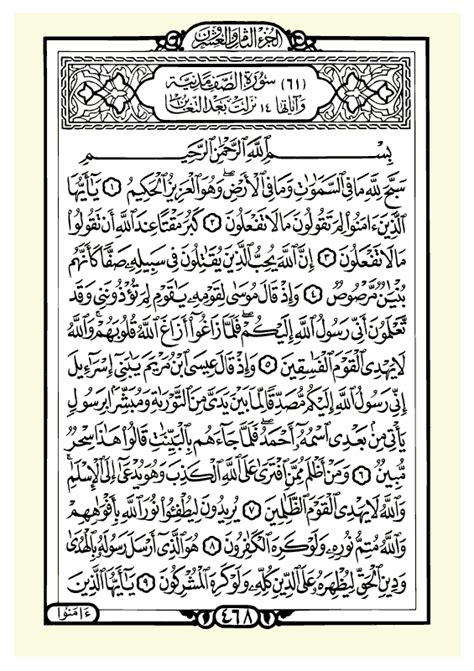 الجزء الثامن والعشرون
(٦١) سورة الصف مدنية
وآياتها ١٤ نزلت بعد التغابن
بِسْمِ اللَّهِ الرَّحْمَٰنِ الرَّحِيمِ
سَبَّحَ لِلَّهِ مَا فِي السَّمَٰوَٰتِ وَمَا فِي الْأَرْضِ ۖ وَهُوَ الْعَزِيزُ الْحَكِيمُ ١ يَٰٓأَيُّهَا
الَّذِينَ ءَامَنُوا لِمَ تَقُولُونَ مَا لَا تَفْعَلُونَ ٢ كَبُرَ مَقْتًا عِندَ اللَّهِ أَن تَقُولُوا
مَا لَا تَفْعَلُونَ ٣ إِنَّ اللَّهَ يُحِبُّ الَّذِينَ يُقَٰتِلُونَ فِي سَبِيلِهِ صَفًّا كَأَنَّهُم
بُنْيَٰنٌ مَّرْصُوصٌ ٤ وَإِذْ قَالَ مُوسَىٰ لِقَوْمِهِ يَٰقَوْمِ لِمَ تُؤْذُونَنِي وَقَد
تَّعْلَمُونَ أَنِّي رَسُولُ اللَّهِ إِلَيْكُمْ ۖ فَلَمَّا زَاغُوا أَزَاغَ اللَّهُ قُلُوبَهُمْ ۚ وَاللَّهُ
لَا يَهْدِي الْقَوْمَ الْفَٰسِقِينَ ٥ وَإِذْ قَالَ عِيسَى ابْنُ مَرْيَمَ يَٰبَنِي إِسْرَٰٓءِيلَ
إِنِّي رَسُولُ اللَّهِ إِلَيْكُم مُّصَدِّقًا لِّمَا بَيْنَ يَدَيَّ مِنَ التَّوْرَىٰةِ وَمُبَشِّرًا بِرَسُولٍ
يَأْتِي مِن بَعْدِي اسْمُهُ أَحْمَدُ ۖ فَلَمَّا جَاءَهُم بِالْبَيِّنَٰتِ قَالُوا هَٰذَا سِحْرٌ
مُّبِينٌ ٦ وَمَنْ أَظْلَمُ مِمَّنِ افْتَرَىٰ عَلَى اللَّهِ الْكَذِبَ وَهُوَ يُدْعَىٰ إِلَى الْإِسْلَٰمِ ۚ
وَاللَّهُ لَا يَهْدِي الْقَوْمَ الظَّٰلِمِينَ ٧ يُرِيدُونَ لِيُطْفِـُٔوا نُورَ اللَّهِ بِأَفْوَٰهِهِمْ
وَاللَّهُ مُتِمُّ نُورِهِ وَلَوْ كَرِهَ الْكَٰفِرُونَ ٨ هُوَ الَّذِي أَرْسَلَ رَسُولَهُ بِالْهُدَىٰ
وَدِينِ الْحَقِّ لِيُظْهِرَهُ عَلَى الدِّينِ كُلِّهِ وَلَوْ كَرِهَ الْمُشْرِكُونَ ٩ يَٰٓأَيُّهَا الَّذِينَ
ءَامَنُوا
٤٦٨